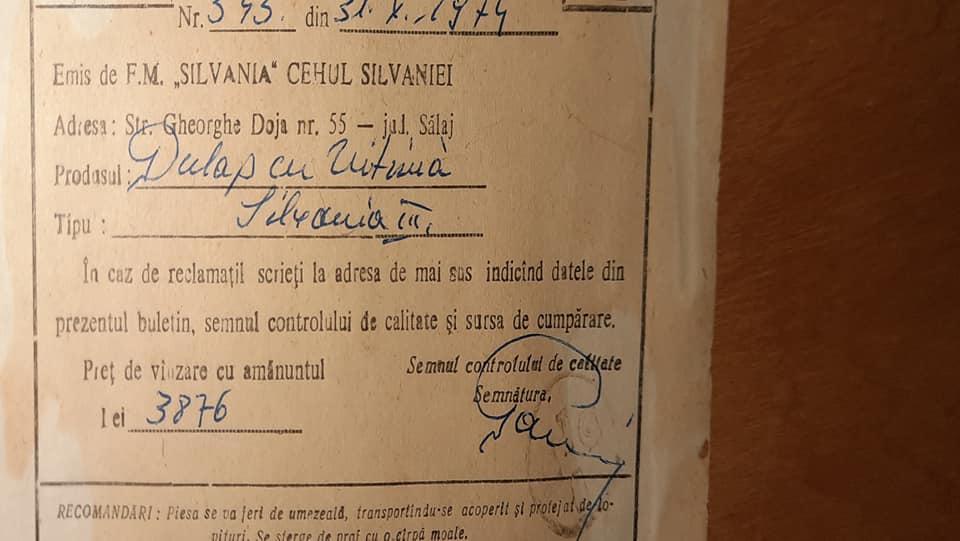 Nr. 393. din 31.X.1974
Emis de F.M. „SILVANIA“ CEHUL SILVANIEI
Adresa: Str. Gheorghe Doja nr. 55 — jud. Sălaj
Produsul: Dulap cu Vitrină
Tipu: Silvania III.
În caz de reclamații scrieți la adresa de mai sus indicînd datele din
prezentul buletin, semnul controlului de calitate și sursa de cumpărare.
Preț de vînzare cu amănuntul
lei 3876
Semnul controlului de calitate
Semnătura,
RECOMANDĂRI: Piesa se va feri de umezeală, transportîndu-se acoperit și protejat de lo-
vituri. Se șterge de praf cu o cîrpă moale.